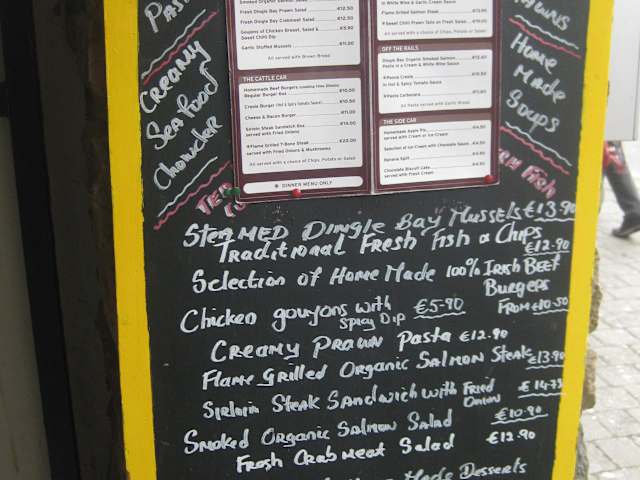 Smoked Organic Salmon Salad
Fresh Dingle Bay Prawn Salad €12.50
Fresh Dingle Bay Crabmeat Salad €12.50
Goujons of Chicken Breast, Salad & €5.90
Sweet Chili Dip
Garlic Stuffed Mussels €11.00
All served with Brown Bread
THE CATTLE CAR
Homemade Beef Burgers
Regular Burger 6oz €10.50
Creole Burger €10.50
Cheese & Bacon Burger €11.00
Sirloin Steak Sandwich 6oz €14.50
served with Fried Onions
Flame Grilled T-Bone Steak €23.00
served with Fried Onions & Mushrooms
All served with a choice of Chips, Potato or Salad
DINNER MENU ONLY
in White Wine & Garlic Cream Sauce
Flame Grilled Salmon Steak
Sweet Chili Prawn Tails on Fresh Salad
All served with a choice of Chips, Potato or Salad
OFF THE RAILS
Dingle Bay Organic Smoked Salmon
Pasta in a Cream & White Wine Sauce
Pasta Creole
in Hot & Spicy Tomato Sauce
Pasta Carbonara
All Pasta served with Garlic Bread
THE SIDE CAR
Homemade Apple Pie €4.50
served with Cream or Ice-Cream
Selection of Ice Cream with Chocolate Sauce €4.50
Banana Split €4.50
Chocolate Biscuit Cake €4.50
served with Fresh Cream
Past
Creamy
Seafood
Chowder
Prawns
Home
Made
Soups
Fish
Steamed Dingle Bay Mussels €13.90
Traditional Fresh Fish & Chips €12.90
Selection of Home Made 100% Irish Beef
Burgers
From €10.50
Chicken goujons with €5.90
Spicy Dip
Creamy Prawn Pasta €12.90
Flame Grilled Organic Salmon Steak €13.90
Sirloin Steak Sandwich with Fried Onion € 14.75
Smoked Organic Salmon Salad €10.90
Fresh Crab Meat Salad €12.90
Made Desserts